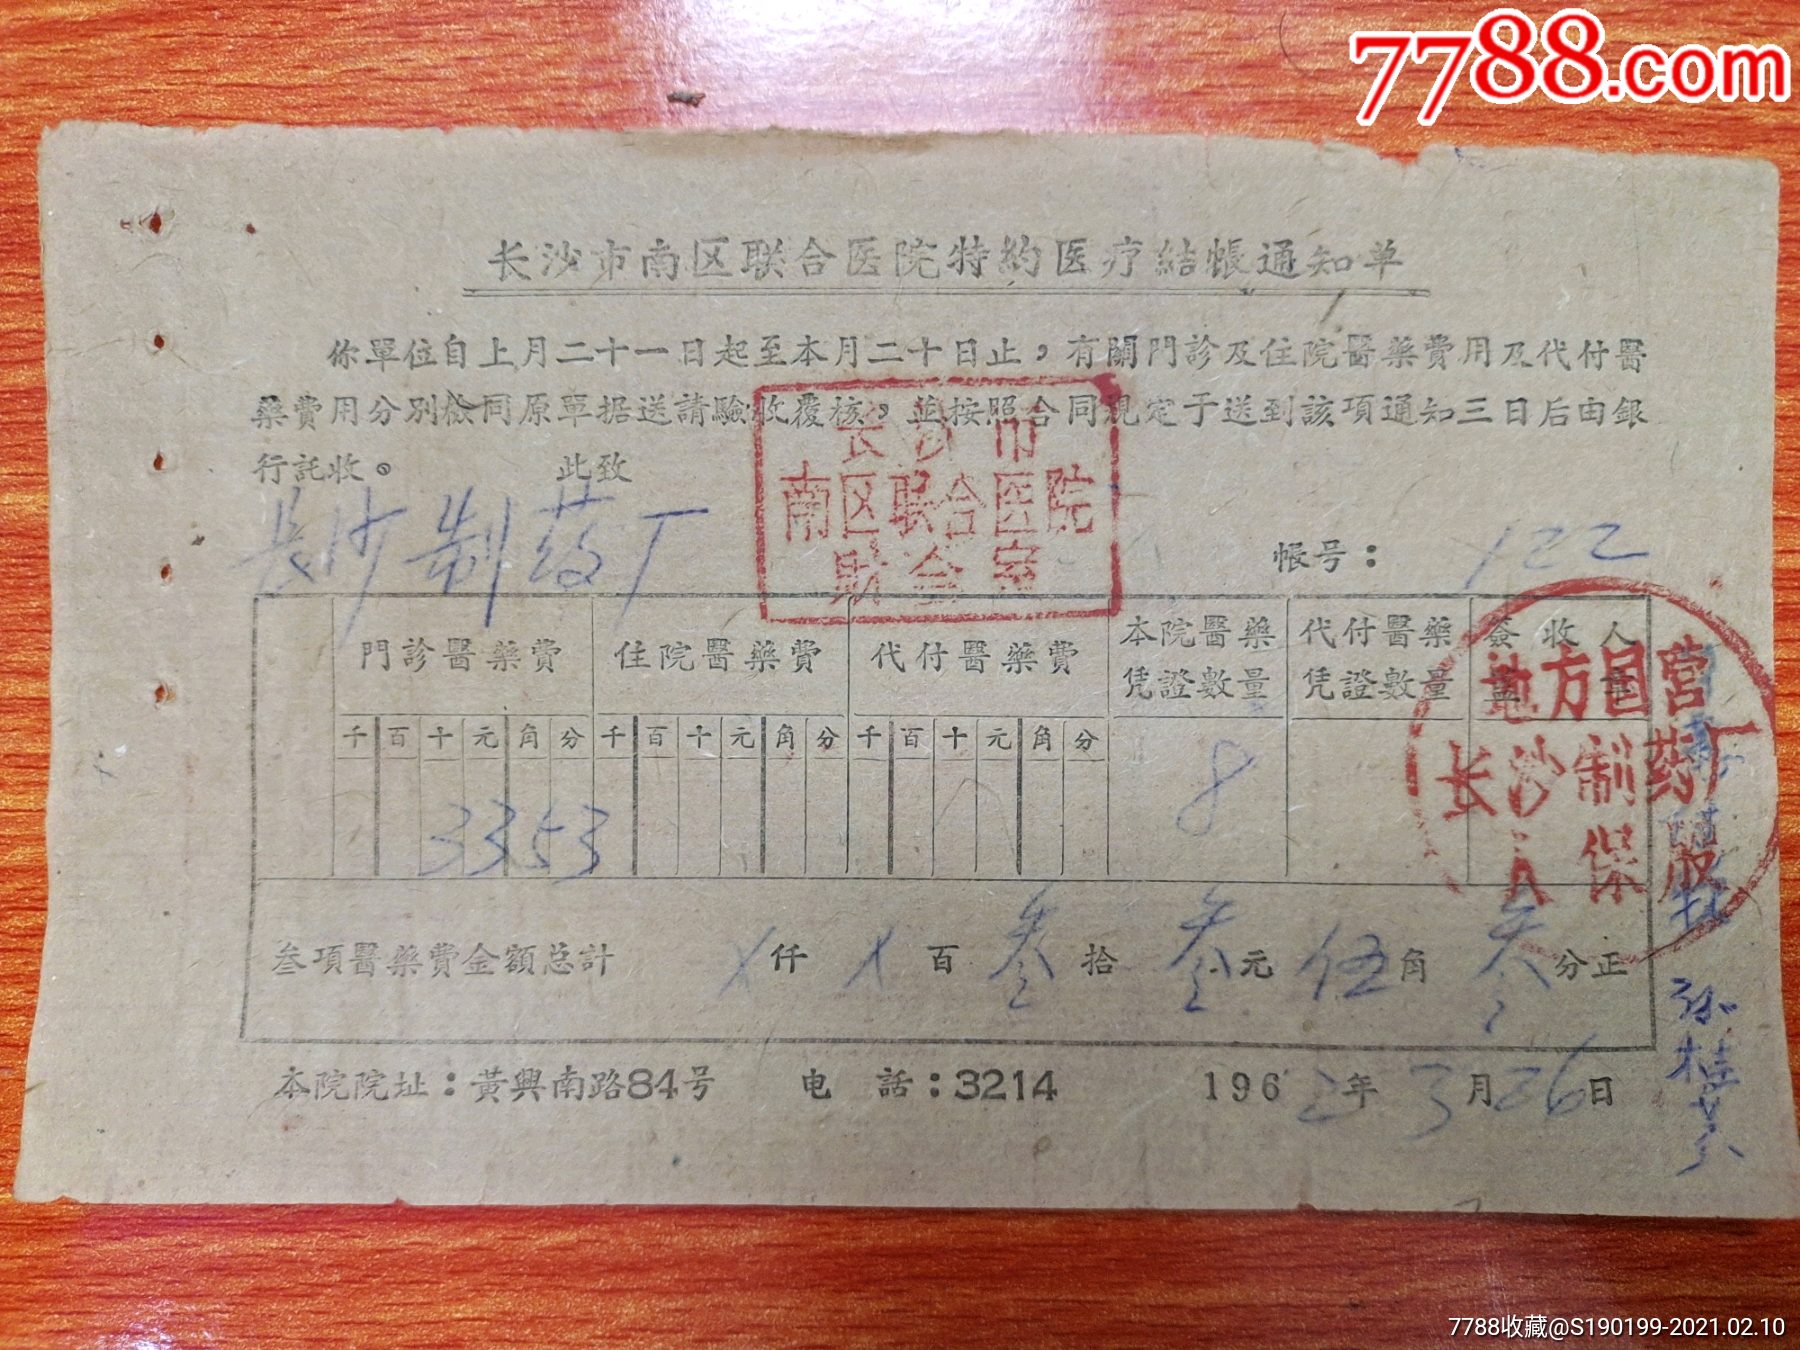 7788.com
长沙市南区联合医院特約医疗結帳通知单
你單位自上月二十一日起至本月二十日止，有關門診及住院醫藥費用及代付醫
藥費用分别檢同原單据送請驗收覆核，並按照合同規定于送到該項通知三日后由銀
行託收。 此致
长沙市
南区联合医院
財会室
長沙制药厂 帳号： 122
門診醫藥費 住院醫藥費 代付醫藥費 本院醫藥凭證數量 代付醫藥凭證數量 簽收人蓋章
千 百 十 元 角 分 千 百 十 元 角 分 千 百 十 元 角 分
3353 8
地方国营
长沙制药厂
保
叁項醫藥費金額总計 X仟 X百 叁拾 叁元 伍角 叁分正
本院院址：黃興南路84号 电 話：3214 1962年3月26日
7788收藏@S190199-2021.02.10